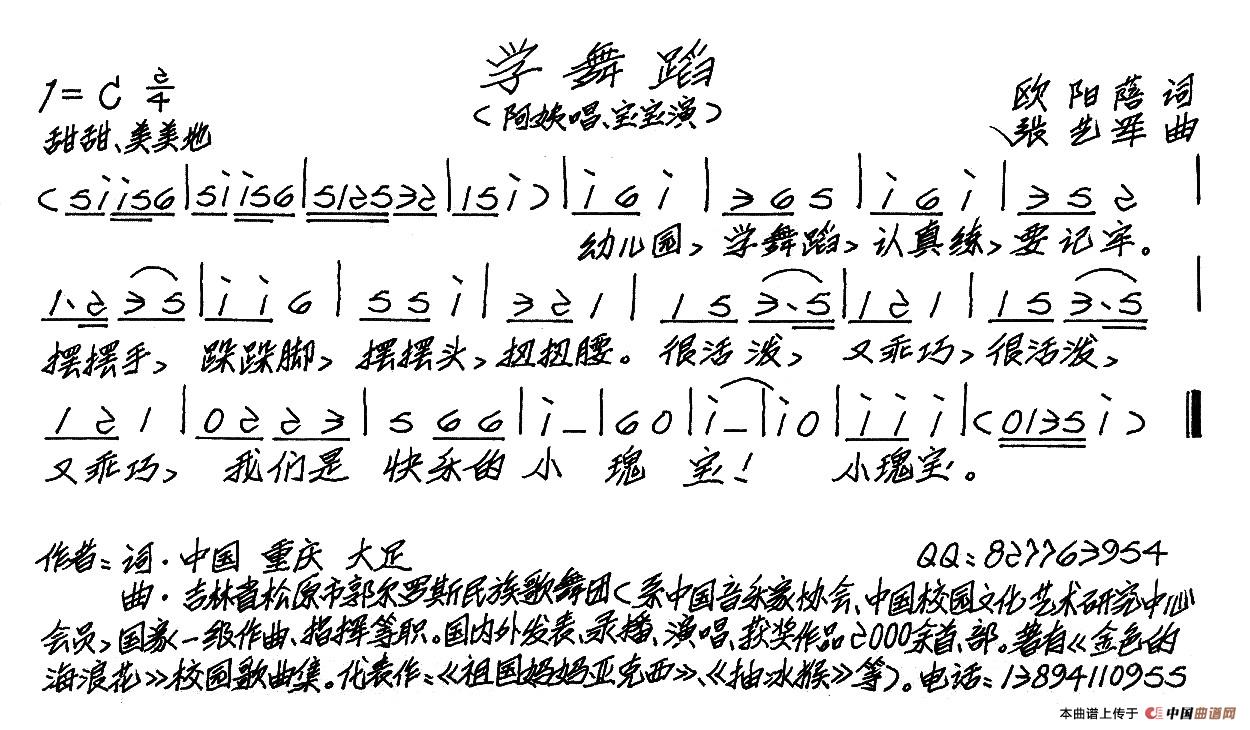 学舞蹈
1=C 2/4
(阿姨唱、宝宝演)
欧阳蓓 词
甜甜、美美地
张艺军 曲
(5i i56|5i i56|512532|15i)|i 6 i|3 6 5|i 6 i|3 5 2|
幼儿园,学舞蹈,认真练,要记牢。
1、2 3 5|i i 6|5 5 i|3 2 1|1 5 3、5|1 2 1|1 5 3、5|
摆摆手,跺跺脚,摆摆头,扭扭腰。很活泼,又乖巧,很活泼,
1 2 1|0 2 2 3|5 6 6|i –|6 0|i –|i 0|i i i|(0135 i)‖
又乖巧,我们是快乐的小瑰宝!小瑰宝。
作者:词·中国 重庆 大足 QQ:827763954
曲·吉林省松原市郭尔罗斯民族歌舞团(系中国音乐家协会、中国校园文化艺术研究中心
会员,国家一级作曲、指挥等职。国内外发表、录播、演唱、获奖作品2000余首、部。著有《金色的
海浪花》校园歌曲集。代表作:《祖国妈妈亚克西》、《抽冰猴》等)。电话:13894110955
本曲谱上传于 中国曲谱网